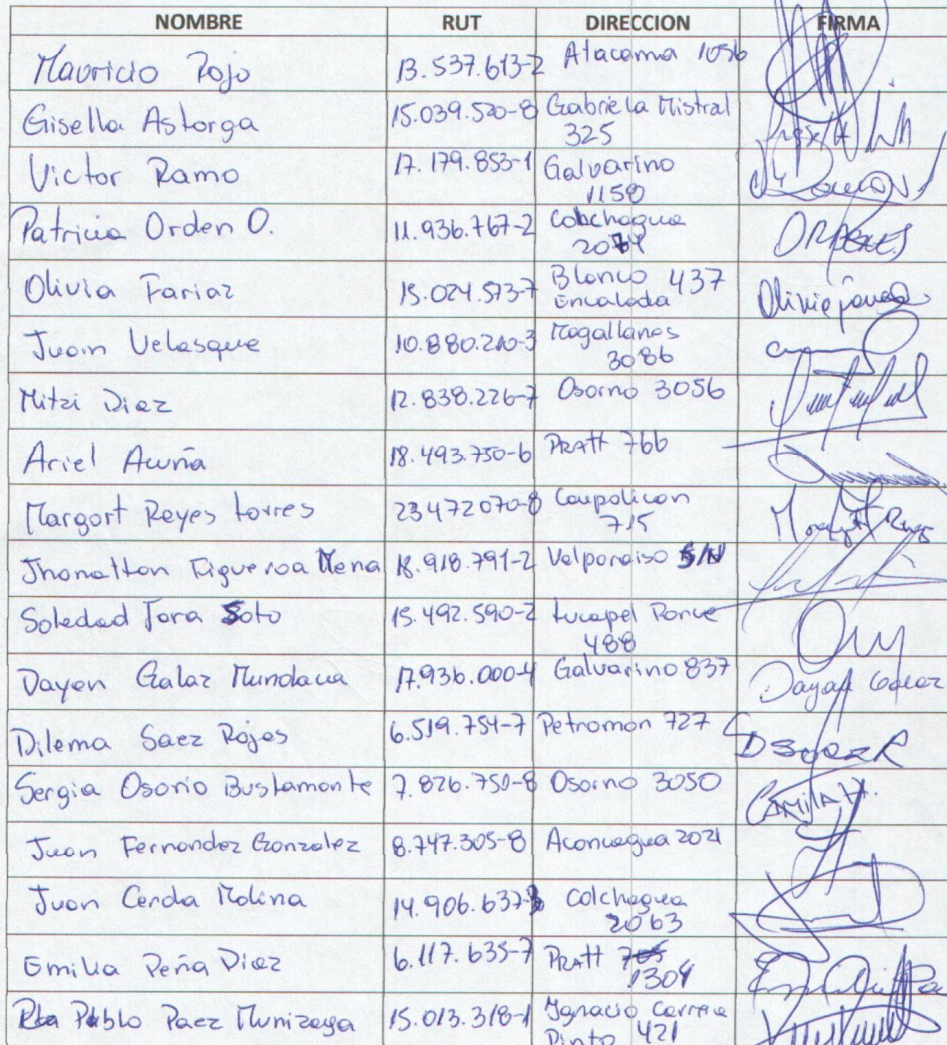 NOMBRE RUT DIRECCION FIRMA
Mauricio Rojo 13.537.613-2 Atacama 1056
Gisella Astorga 15.039.520-8 Gabriela Mistral
325
Victor Ramo 17.179.853-1 Galvarino
1158
Patricia Orden O. 11.936.767-2 Colchagua
2074 ORDENES
Olivia Fariaz 15.024.573-7 Blanco 437
Encalada Olivia
Juan Velasque 10.880.210-3 Magallanes
3086
Mitzi Diaz 12.838.226-7 Osorno 3056
Ariel Acuña 18.493.750-6 PRAtt 766
Margort Reyes torres 23472070-8 Caupolican
715
Jhonatton Figueroa Mena 18.918.791-2 Valparaiso S/N
Soledad Jara Soto 15.492.590-2 Lucapel Ponce
488
Dayan Galaz Mundaca 17.936.000-4 Galvarino 837 Dayan Galaz
Dilema Saez Rojas 6.519.754-7 Petromon 727 DSaezR
Sergia Osorio Bustamante 7.826.750-8 Osorno 3050 CAMILA H.
Juan Fernandez Gonzalez 8.747.305-8 Aconcagua 2021
Juan Cerda Molina 14.906.637-3 Colchagua
2063
Emilia Peña Diaz 6.117.635-7 PRAtt 705
1309
Pablo Paez Munizaga 15.013.318-1 Ignacio Carrera
Pinto 421